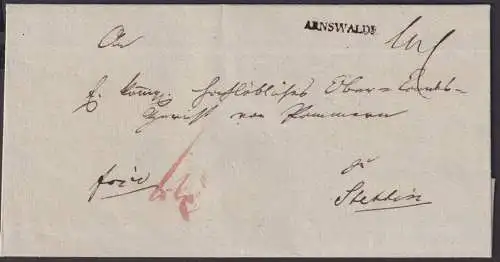 ARNSWALDE
An
E. Königl. Hochlöbliches Ober=Landes-
Gericht von Pommern
zu
frei
Stettin